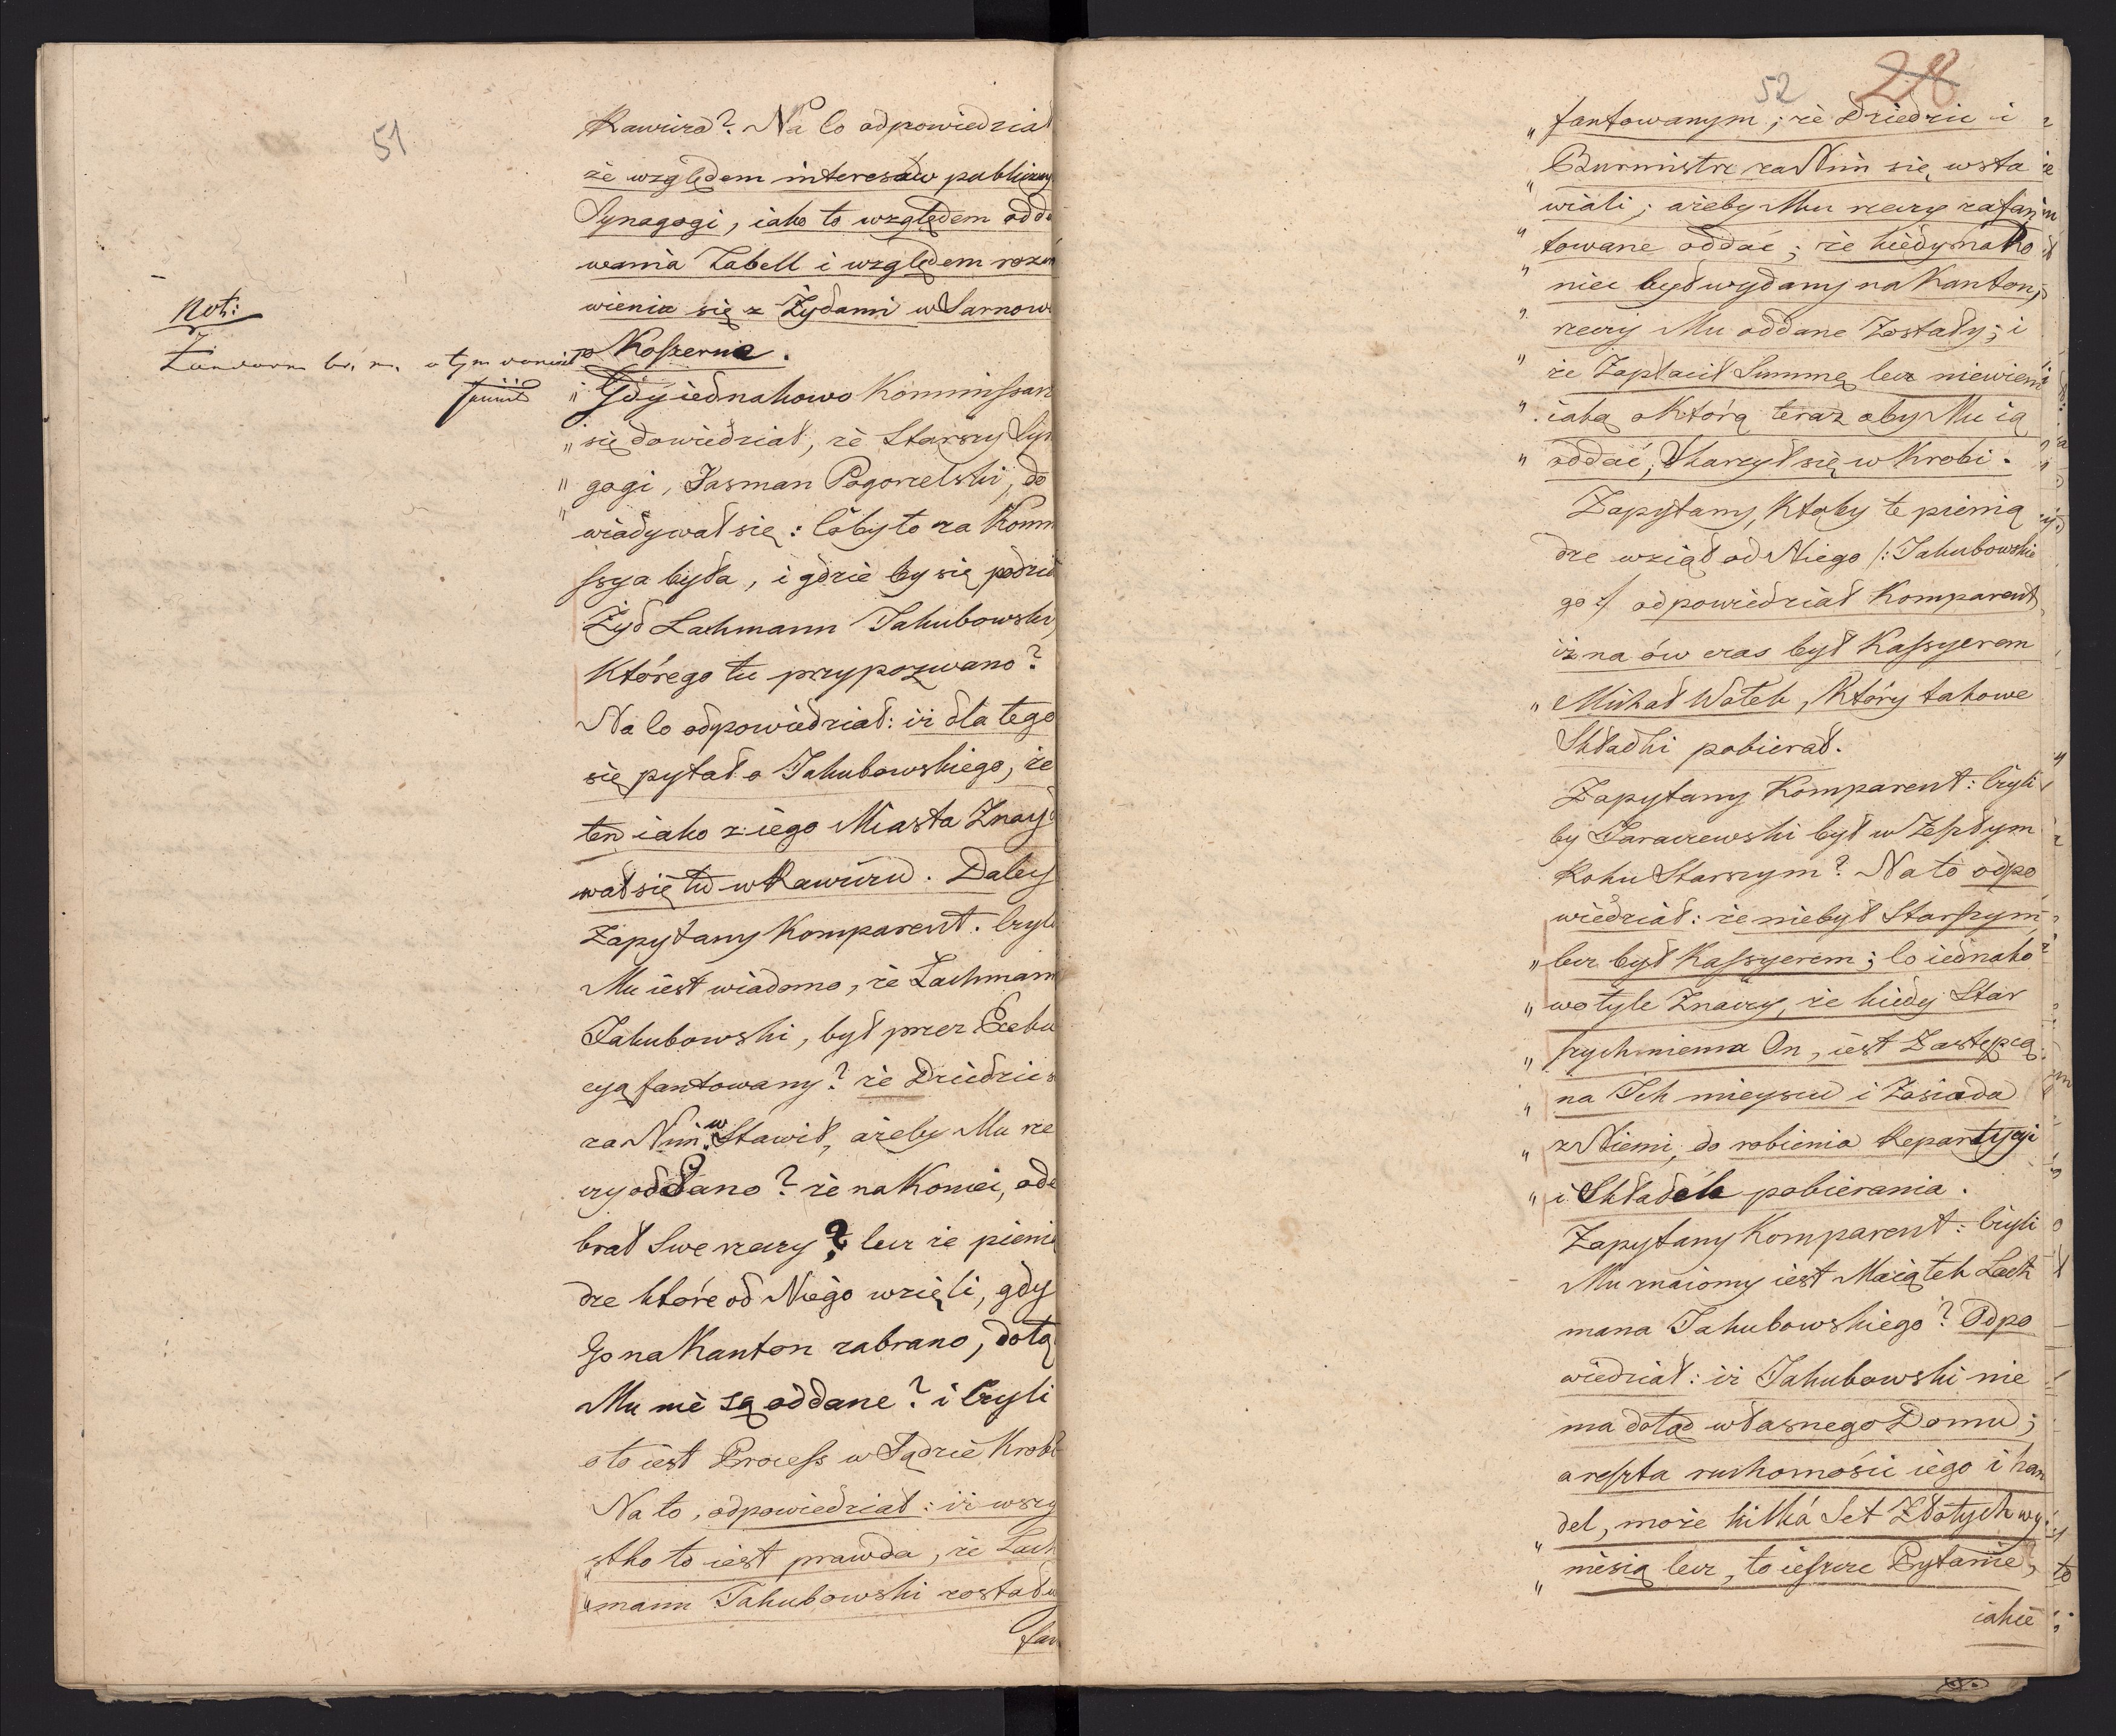 51
Rawicza? Na co odpowiedział
że względem interessów publiczny
Synagogi, iako to względem odda
wania Tabell i względem rozm
wienia się z Żydami w Sarnow
o Koszerne.
Not:
Żandarm
o tym
„ Gdy iednakowo Kommissarz
„ się dowiedział, że Starszy Syn
„ gogi, Jasman Pogorzelski, do
„ wiadywał się: coby to za Komm
ssya była, i gdzie by się podział
Żyd Lachmann Jakubowski,
którego tu przypozwano?
Na co odpowiedział: iż dla tego
się pytał o Jakubowskiego, że
ten iako z iego Miasta Znayd
wał się tu w Rawiczu. Daley
Zapytany Komparent. Czyli
Mu iest wiadomo, że Lachmann
Jakubowski, był przez Exeku
cyą fantowany? że Dziedzic
za Nim wstawił, ażeby Mu rze
czy oddano? że na Koniec, ode
brał Swe rzeczy? lecz że pienią
dze które od Niego wzięli, gdy
Go na Kanton zabrano, dotą
Mu nie są oddane? i Czyli
o to iest Process w Sądzie Krobi
Na to, odpowiedział: iż wszy
stko to iest prawda, że Lach
„ mann Jakubowski został
fan
52
28
„ fantowanym; że Dziedzic i
„ Burmistrz za Nim się wsta
„ wiali; ażeby Mu rzeczy zafan
„ towane oddać; że kiedy na ko
„ niec był wydany na Kanton,
„ rzeczy Mu oddane Zostały; i
„ że Zapłacił Summę lecz niewiem
„ iaką o którą teraz aby Mu ią
„ oddać, Skarzył się w Krobi.
Zapytany, Ktoby te pienią
dze wziął od Niego /: Jakubowskie
go :/ odpowiedział Komparent
iż na ów czas był Kassyerem
„ Michał Wołek, Który takowe
Składki pobierał.
Zapytany Komparent: Czyli
by Taraczewski był w Zeszłym
Roku Starszym? Na to odpo
wiedział: że niebył Starszym
„ lecz był Kassyerem; co iednako
„ wo tyle Znaczy, że kiedy Star
„ szych niema On, iest Zastępcą
„ na Ich mieyscu i Zasiada
„ z Niemi, do robienia Repartycyi
„ i Składek pobierania.
Zapytany Komparent: Czyli
Mu znaiomy iest Maiątek Lach
mana Jakubowskiego? Odpo
wiedział: iż Jakubowski nie
ma dotąd własnego Domu;
a reszta ruchomości iego i han
„ del, może kilka Set Złotych wy
„ niesią lecz, to ieszcze Pytanie,
iakie